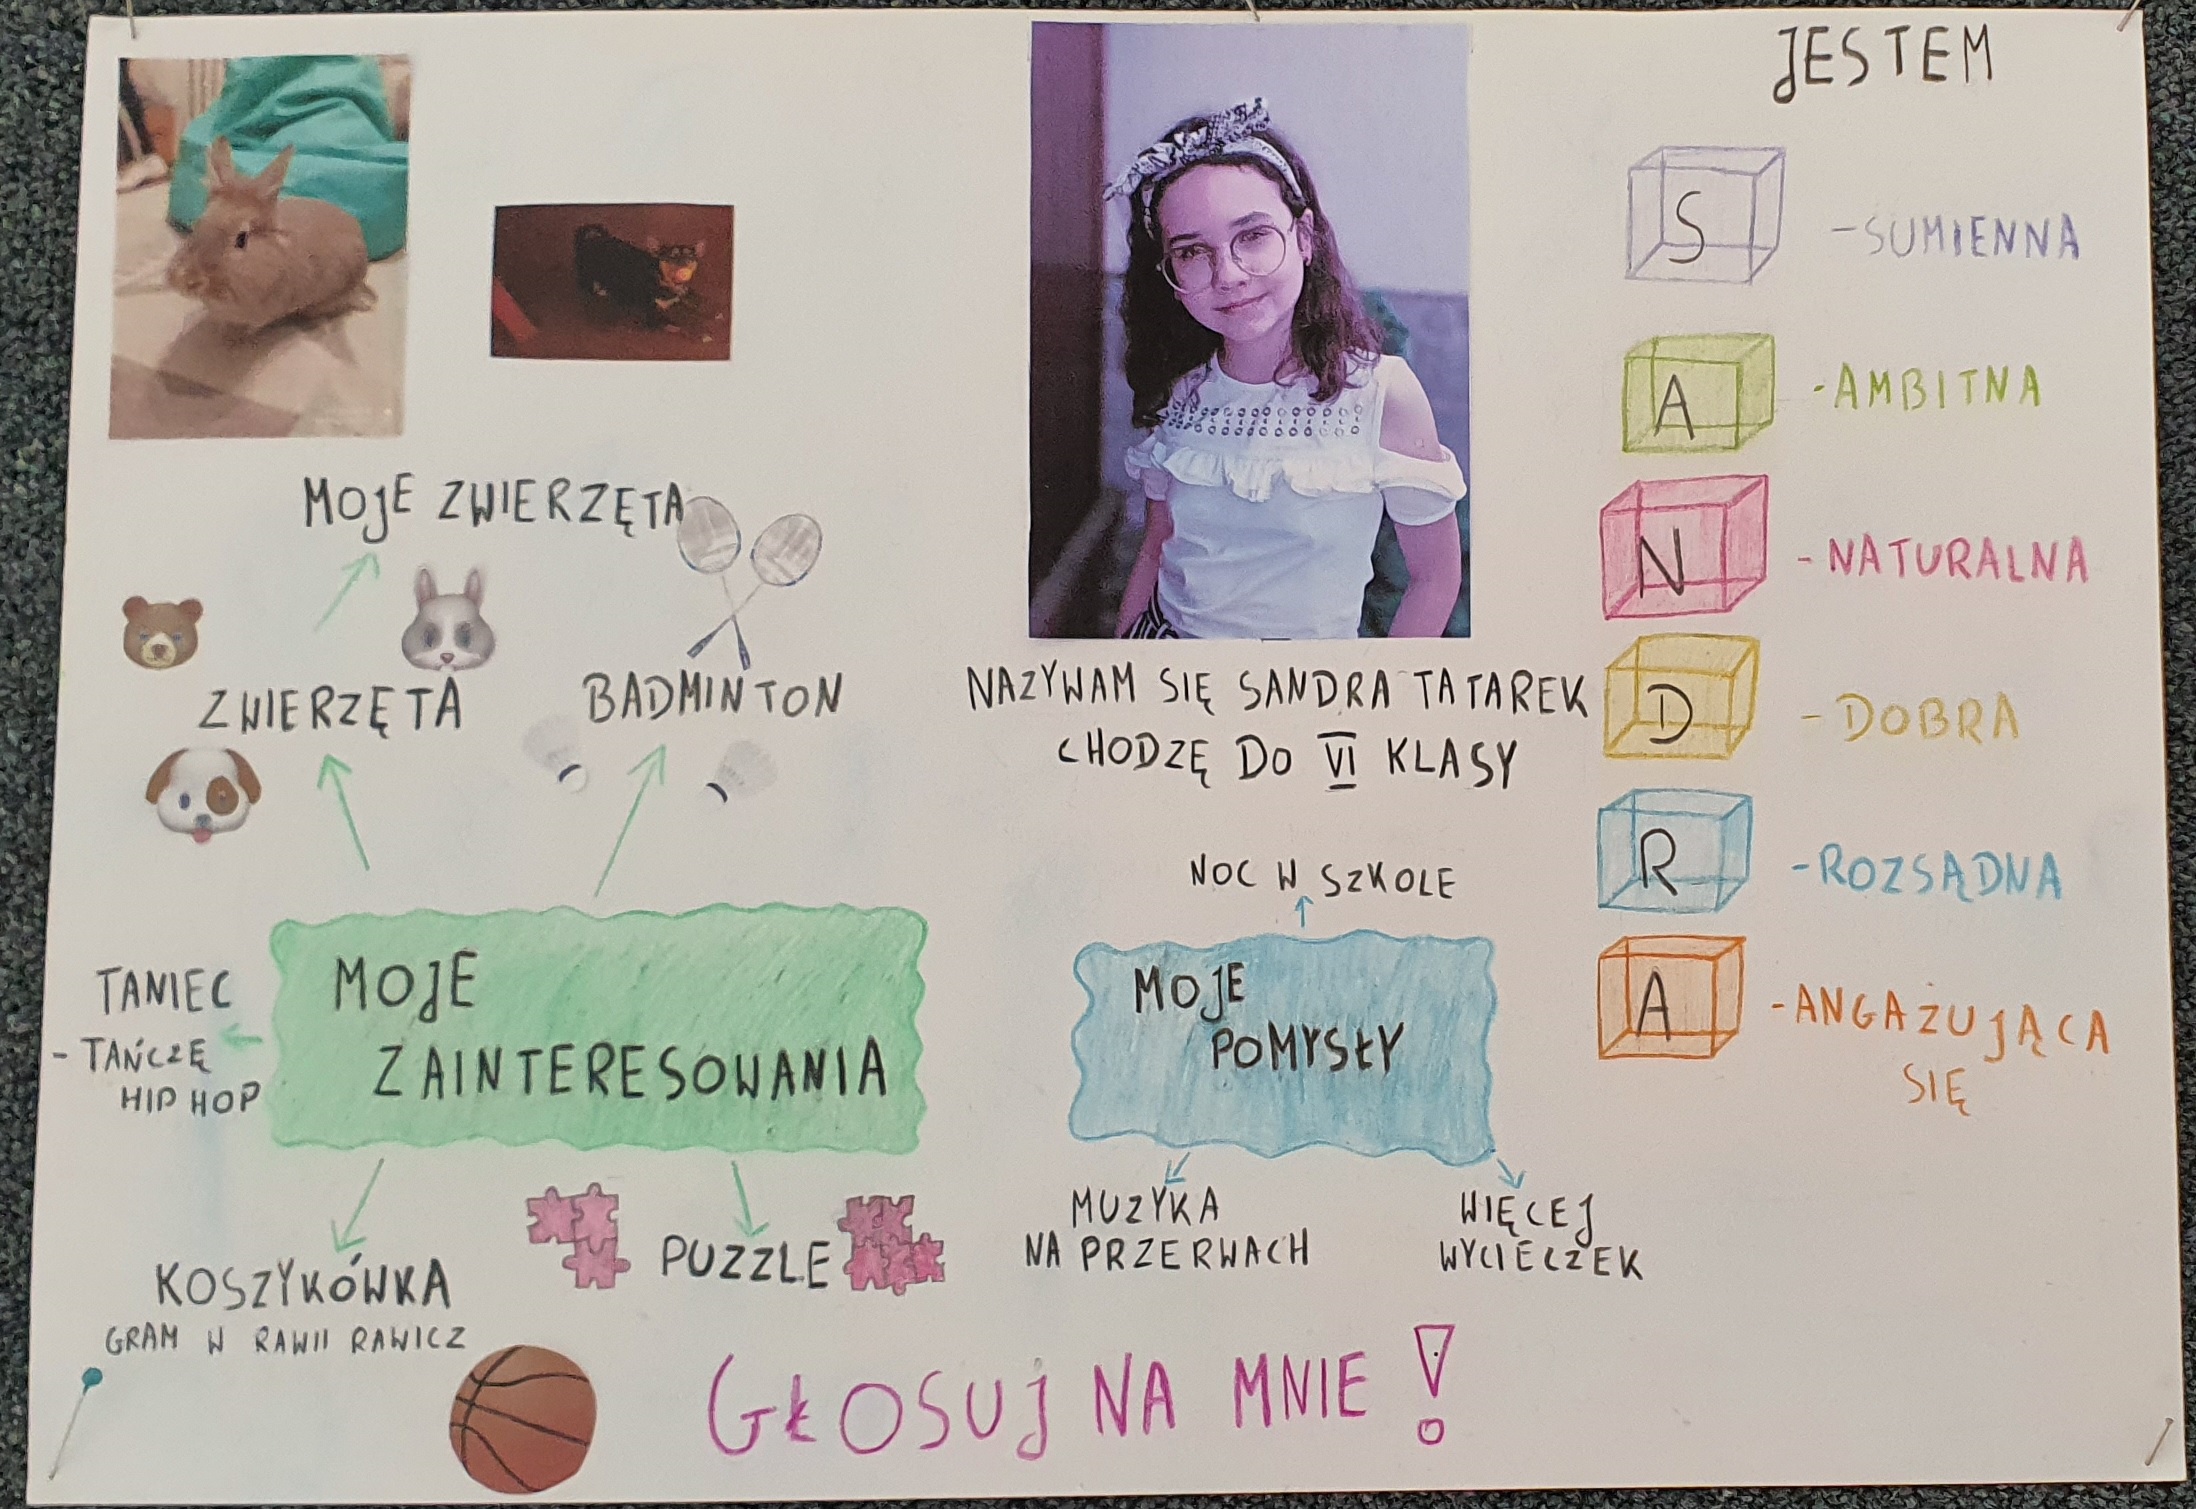 JESTEM
S
-SUMIENNA
A
-AMBITNA
N
-NATURALNA
D
-DOBRA
R
-ROZSĄDNA
A
-ANGAŻUJĄCA
SIĘ
NAZYWAM SIĘ SANDRA TATAREK
CHODZĘ DO VI KLASY
MOJE ZWIERZĘTA
ZWIERZĘTA
BADMINTON
MOJE
ZAINTERESOWANIA
TANIEC
- TAŃCZĘ
HIP HOP
KOSZYKÓWKA
GRAM W RAWII RAWICZ
PUZZLE
NOC W SZKOLE
MOJE
POMYSŁY
MUZYKA
NA PRZERWACH
WIĘCEJ
WYCIECZEK
GŁOSUJ NA MNIE!